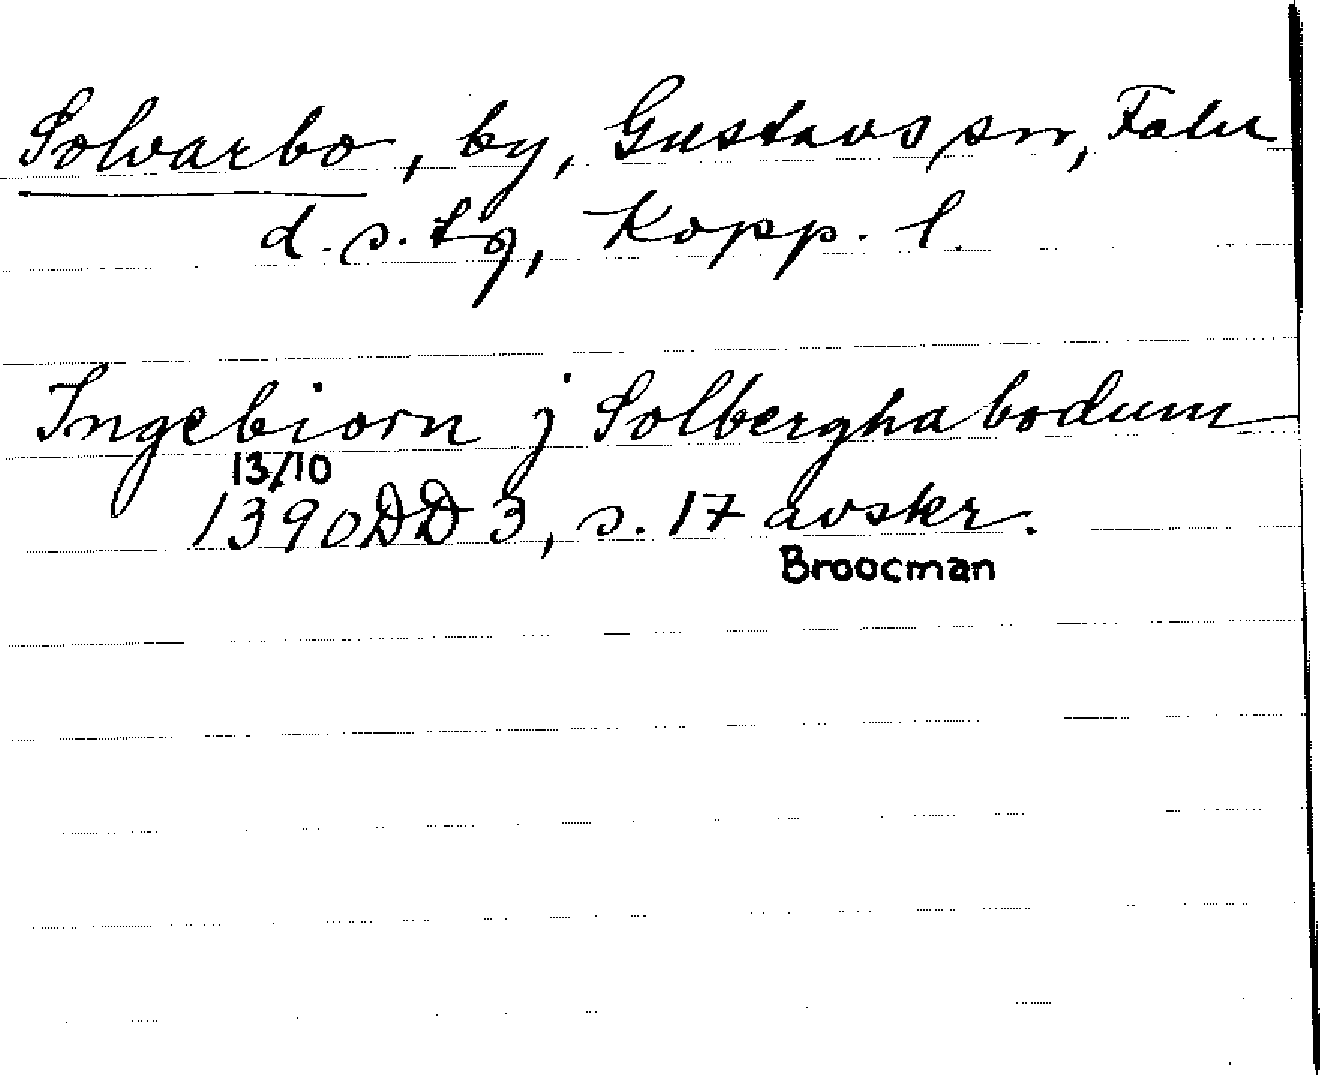 Solvarbo, by, Gustavs sn, Falu
d. s. tg, Kopp. l.
Ingebiorn j Solberghabodum
13/10
1390 DD 3, s. 17 avskr.
Broocman